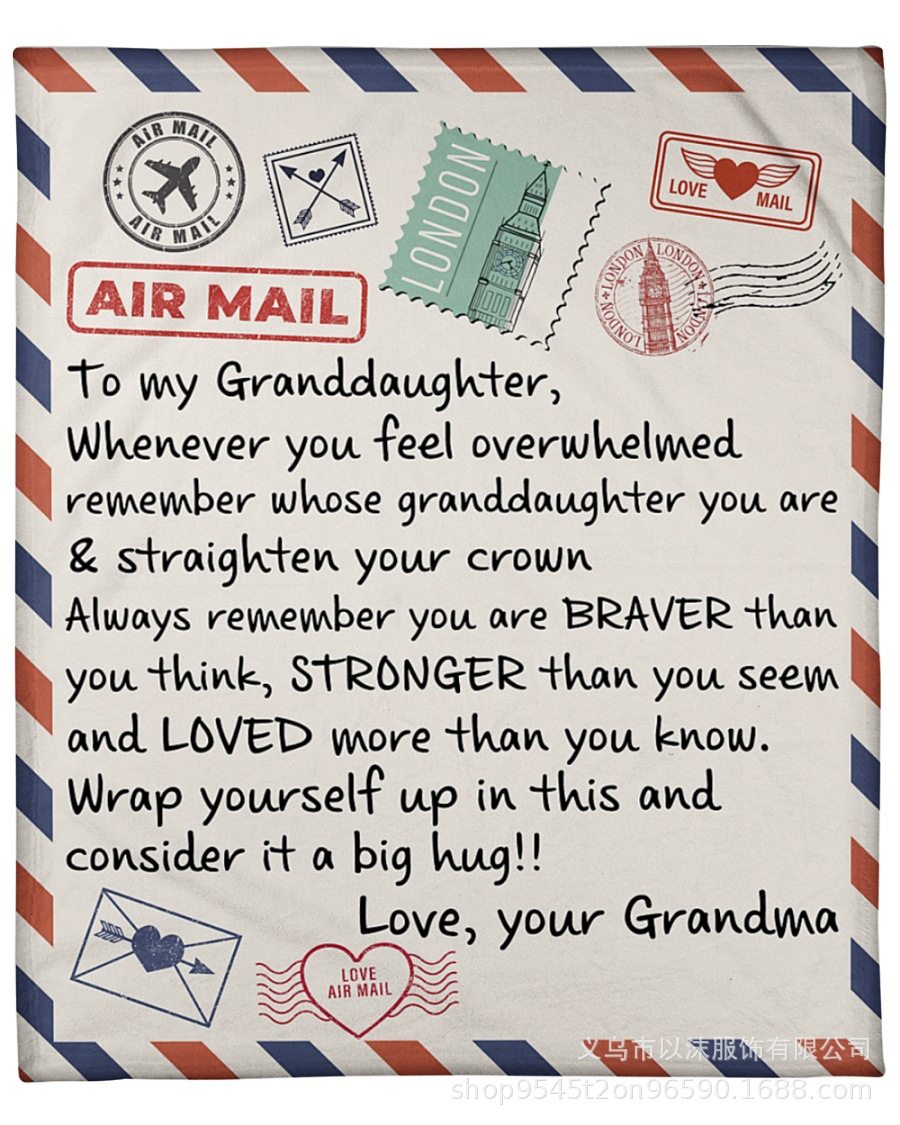 AIR MAIL
AIR MAIL
LONDON
LOVE MAIL
AIR MAIL
LONDON LONDON
LONDON LONDON
To my Granddaughter,
Whenever you feel overwhelmed
remember whose granddaughter you are
& straighten your crown
Always remember you are BRAVER than
you think, STRONGER than you seem
and LOVED more than you know.
Wrap yourself up in this and
consider it a big hug!!
Love, your Grandma
LOVE
AIR MAIL
义乌市以沫服饰有限公司
shop9545t2on96590.1688.com